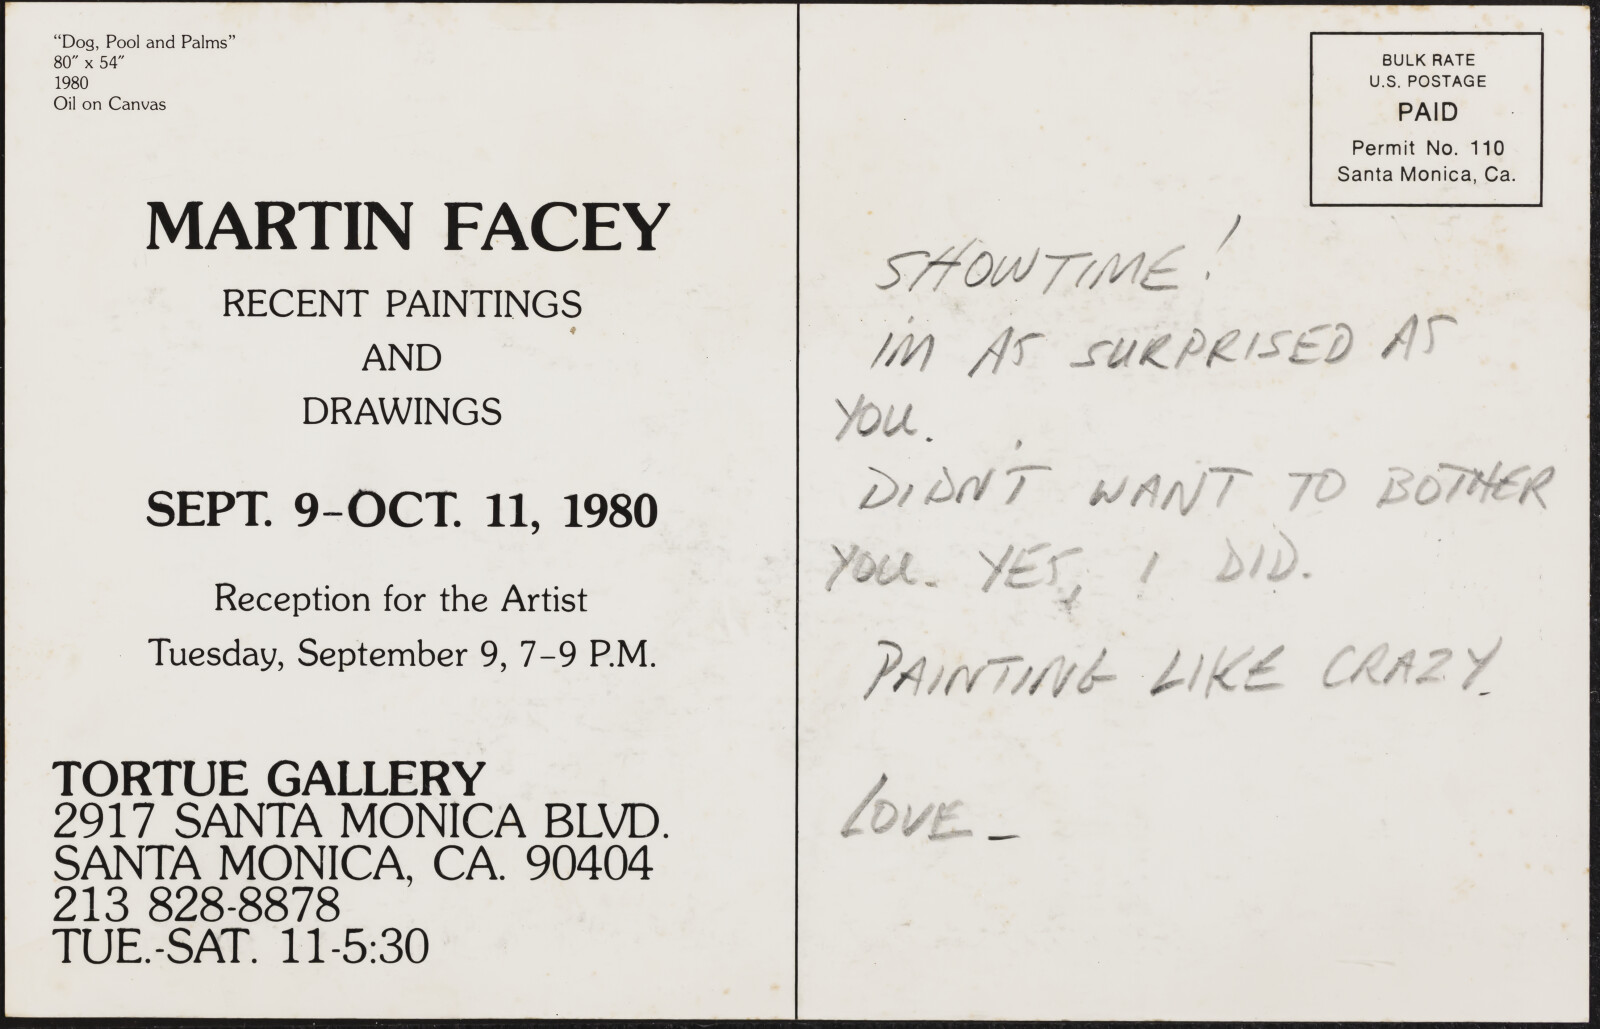 “Dog, Pool and Palms”
80″ x 54″
1980
Oil on Canvas
MARTIN FACEY
RECENT PAINTINGS
AND
DRAWINGS
SEPT. 9–OCT. 11, 1980
Reception for the Artist
Tuesday, September 9, 7–9 P.M.
TORTUE GALLERY
2917 SANTA MONICA BLVD.
SANTA MONICA, CA. 90404
213 828-8878
TUE.-SAT. 11-5:30
BULK RATE
U.S. POSTAGE
PAID
Permit No. 110
Santa Monica, Ca.
SHOWTIME!
I'M AS SURPRISED AS
YOU.
DIDN'T WANT TO BOTHER
YOU. YES, I DID.
PAINTING LIKE CRAZY.
LOVE –